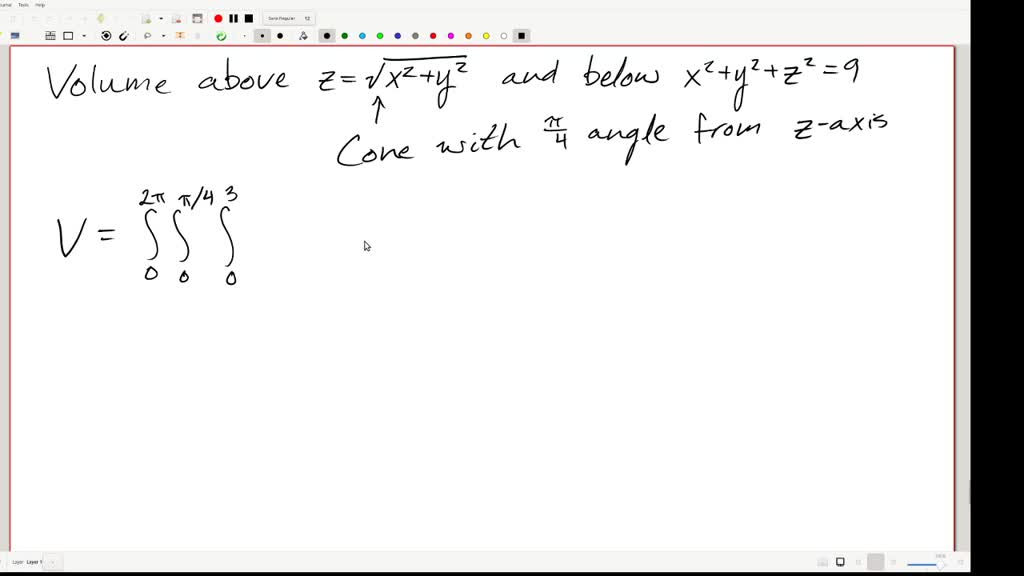 Journal Tools Help
Sans Regular 12
Volume above z = √x²+y² and below x²+y²+z² = 9
↑
Cone with π/4 angle from z-axis
V = ∫₀^2π ∫₀^π/4 ∫₀^3
Layer Layer 1